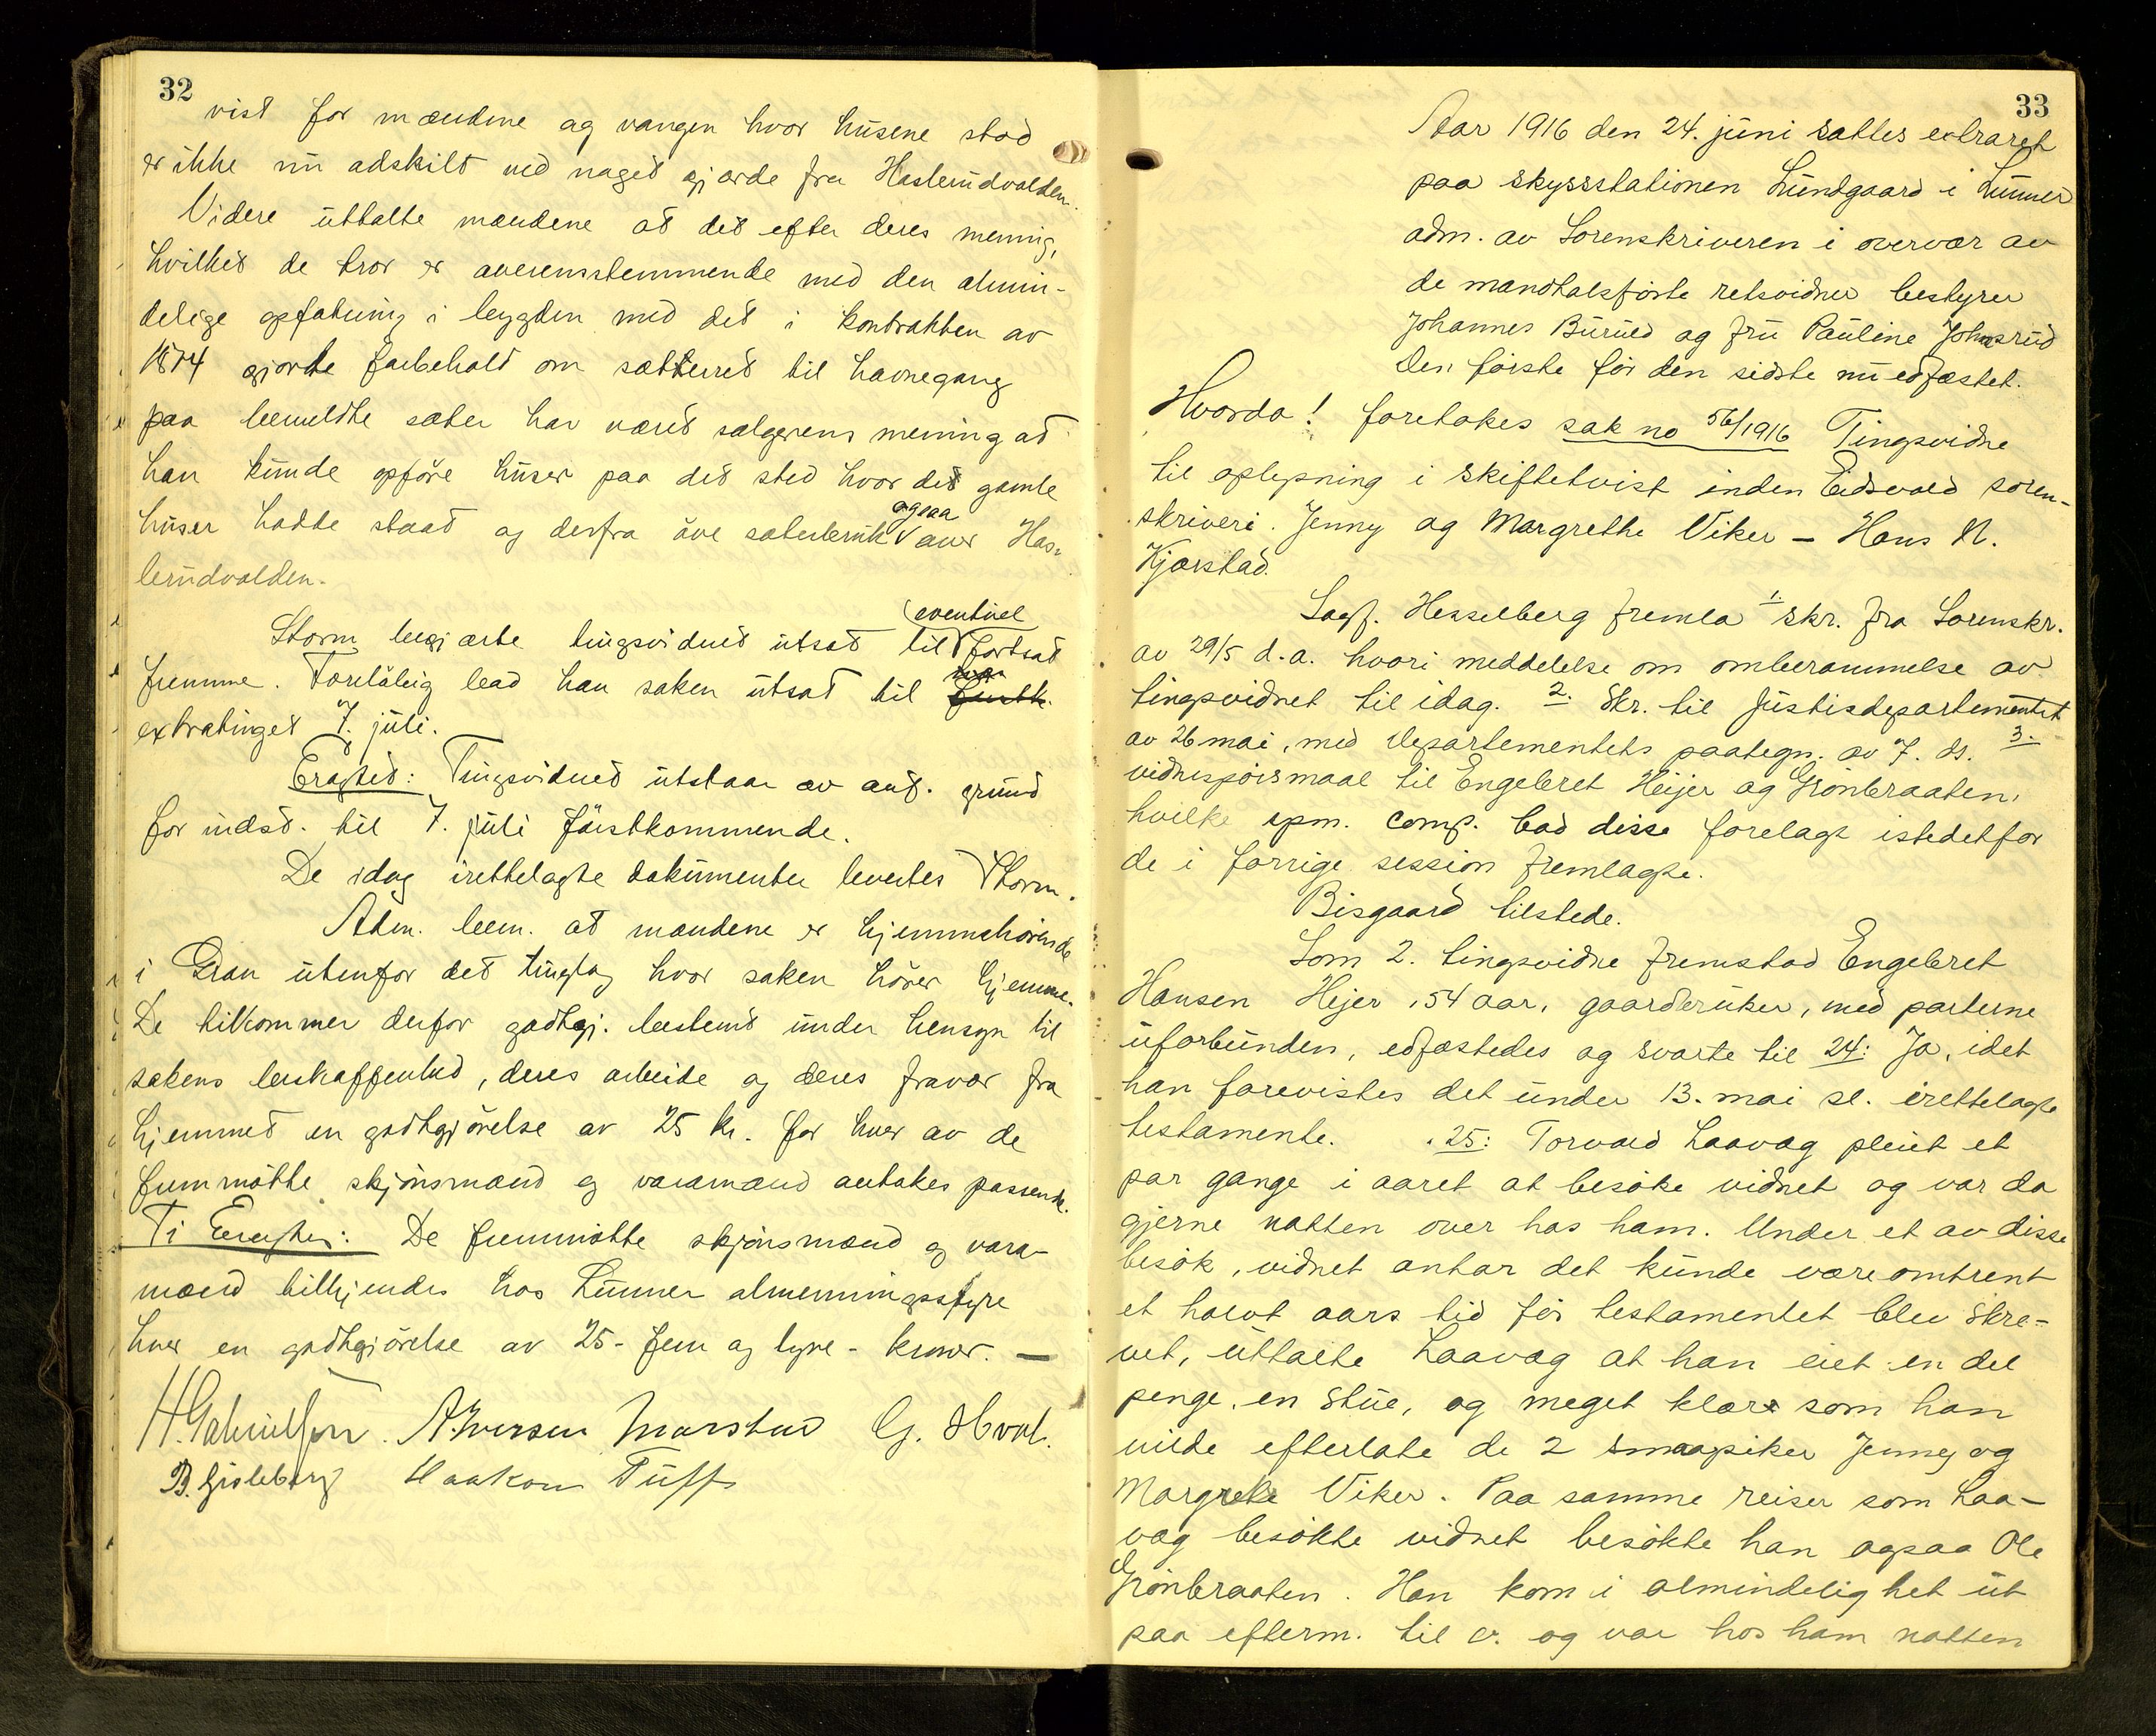 32
vist for mændene og vangen hvor husene stod
er ikke nu adskilt ved noget gjærde fra Haslerudvolden.
Videre uttalte mændene at det efter deres mening,
hvilket de tror er overensstemmende med den almin-
delige opfatning i bygden med det i kontrakten av
1874 gjorte forbehold om sætterret til havnegang
paa bemeldte sæter har været sælgerens mening at
han kunde opføre huser paa det sted hvor det gamle
huser hadde staat og derfra øve sæterbruk ogsaa over Has-
lerudvolden.
Storm begjærte tingsvidnet utsat til eventuel fortsat
fremme. Foreløbig bad han saken utsat til
extratinget 7. juli.
Eragted: Tingsvidnet utstaar av anf. grund
for indst. til 7. juli førstkommende.
De idag irettelagte dokumenter levertes Storm.
Adm. bem. at mændene er hjemmehørende
i Gran utenfor det tinglag hvor saken hører hjemme.
De tilkommer derfor godtgj. bestemt under hensyn til
sakens beskaffenhed, deres arbeide og deres fravær fra
hjemmet en godtgjørelse av 25 kr. for hver av de
fremmøtte skjønsmænd og varamænd antakes passende.
Ti Eragtes: De fremmøtte skjønsmænd og vara-
mænd tilkjendes hos Lunner almenningsstyre
hver en godtgjørelse av 25 - fem og tyve - kroner. —
A. Iversen Morstad G. Hvat.
B. Gisleberg Haakon Tuff
33
Aar 1916 den 24. juni sattes extraret
paa skyssstationen Lundgaard i Lunner
adm. av Sorenskriveren i overvær av
de mandtalsførte retsvidner bestyrer
Johannes Burud og fru Pauline Johnsrud
den første før den sidste nu edfæstet.
Hvorda! foretokes sak no 56/1916 Tingsvidne
til oplysning i skiftetvist inden Eidsvold soren-
skriveri. Jenny og Margrethe Viker – Hans N.
Kjørstad.
Sagf. Hesselberg fremla 1. skr. fra Sorenskr.
av 29/5 d.a. hvori meddelelse om omberammelse av
tingsvidnet til idag. 2. Skr. til Justisdepartementet
av 26 mai, med Departementets paategn. av 7. ds. 3.
vidnespørsmaal til Engebret Heijer og Grønbraaten,
hvilke spm. comp. bad disse forelagt istedetfor
de i forrige session fremlagte.
Bisgaard tilstede.
Som 2. tingsvidne fremstod Engebret
Hansen Hejer, 54 aar, gaardbruker, med parterne
uforbunden, edfæstedes og svarte til 24: Ja, idet
han forevistes det under 13. mai sl. irettelagte
testamente. 25: Torvald Laavag pleiet et
par gange i aaret at besøke vidnet og var da
gjerne natten over hos ham. Under et av disse
besøk, vidnet antar det kunde være omtrent
et halvt aars tid før testamentet blev skre-
vet, uttalte Laavag at han eiet en del
penge, en stue, og meget klær som han
vilde efterlate de 2 smaapiker Jenny og
Margrete Viker. Paa samme reiser som Laa-
vag besøkte vidnet besøkte han ogsaa Ole
Grønbraaten. Han kom i almindelighet ut
paa efterm. til v. og var hos ham natten